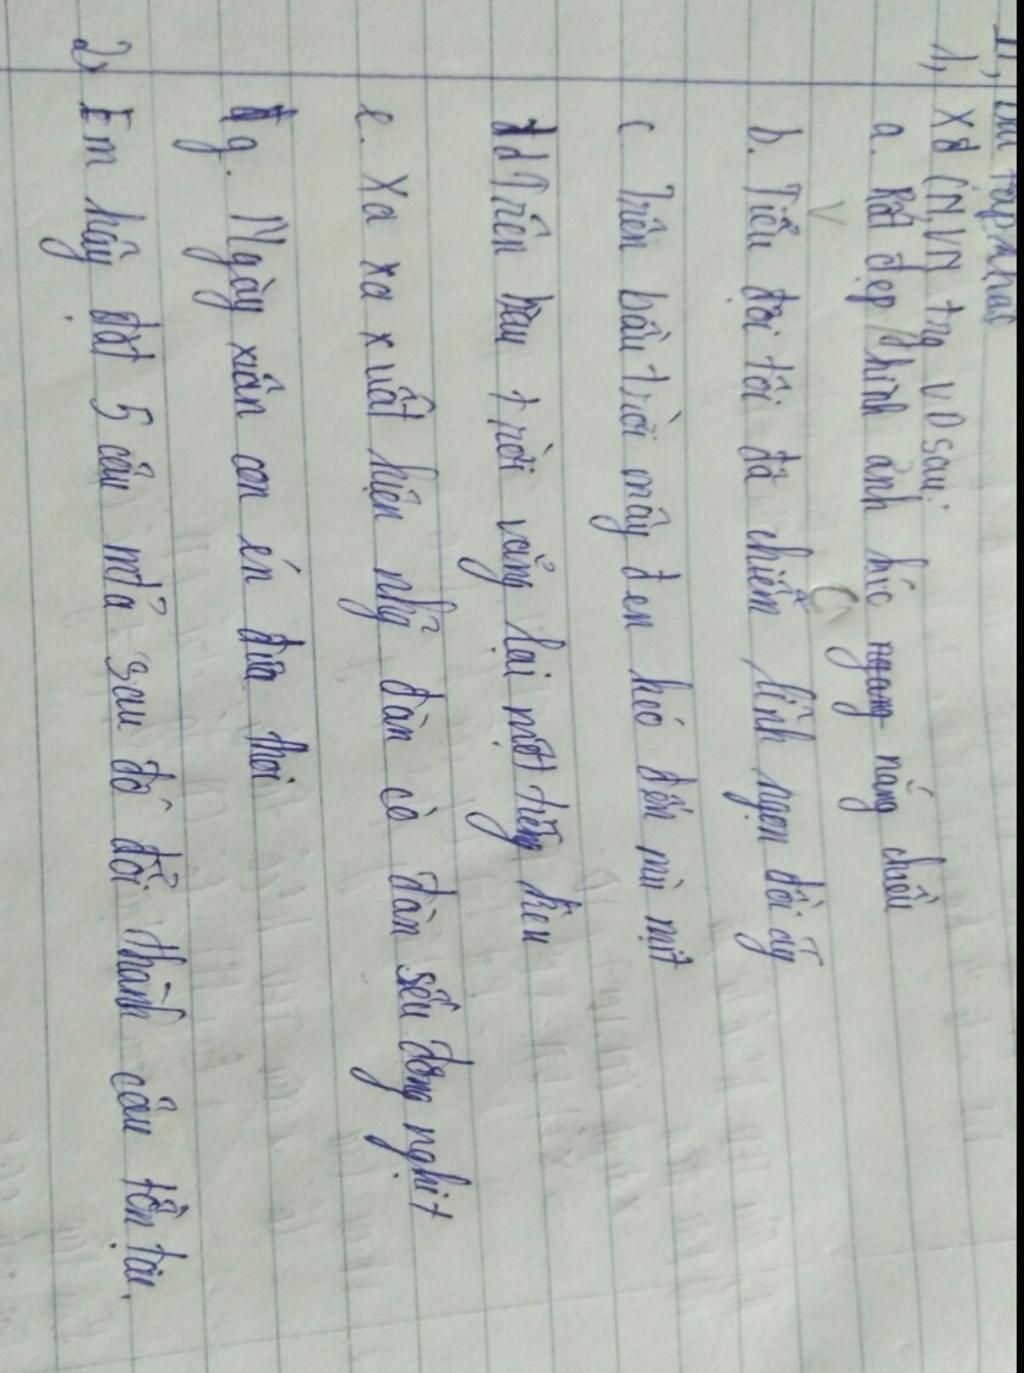 II, Bài tập khác
1, Xđ CN, VN trg VD sau:
a. Rất đẹp / hình ảnh lúc nắng chiều
b. Tiểu đội tôi đã chiếm lĩnh ngọn đồi ấy
c Trên bầu trời mây đen kéo đến mù mịt
d Trên bầu trời vẳng lại một tiếng kêu
e. Xa xa xuất hiện nhg~ đàn cò đàn sếu đông nghịt
g. Ngày xuân con én đưa thoi
2, Em hãy đặt 5 câu m.tả sau đó đổi thành câu tồn tại.